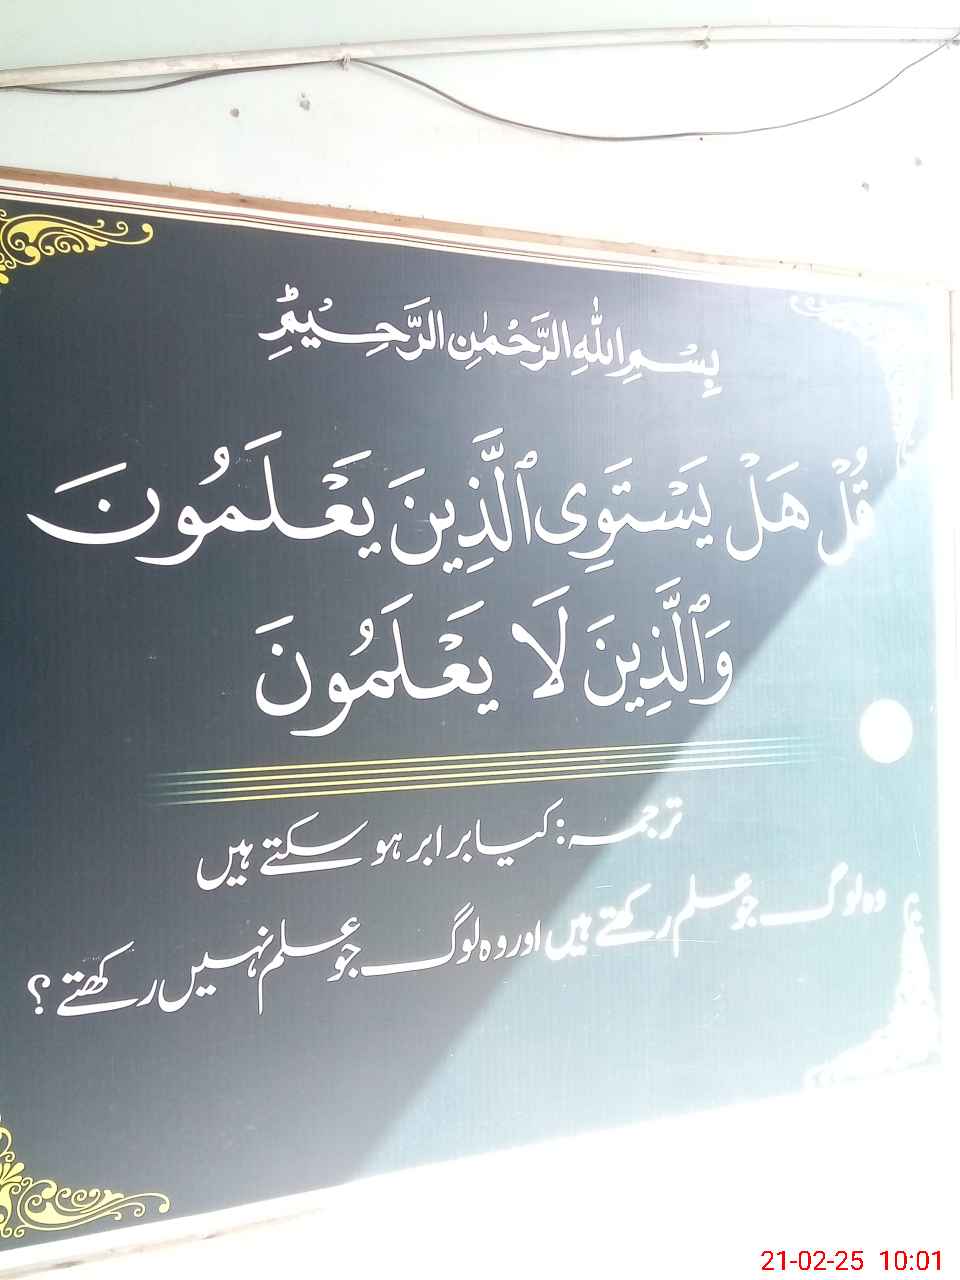 بِسْمِ اللّٰهِ الرَّحْمٰنِ الرَّحِيْمِ
قُلْ هَلْ يَسْتَوِى ٱلَّذِينَ يَعْلَمُونَ
وَٱلَّذِينَ لَا يَعْلَمُونَ
ترجمہ: کیا برابر ہو سکتے ہیں
وہ لوگ جو علم رکھتے ہیں اور وہ لوگ جو علم نہیں رکھتے ؟
21-02-25 10:01